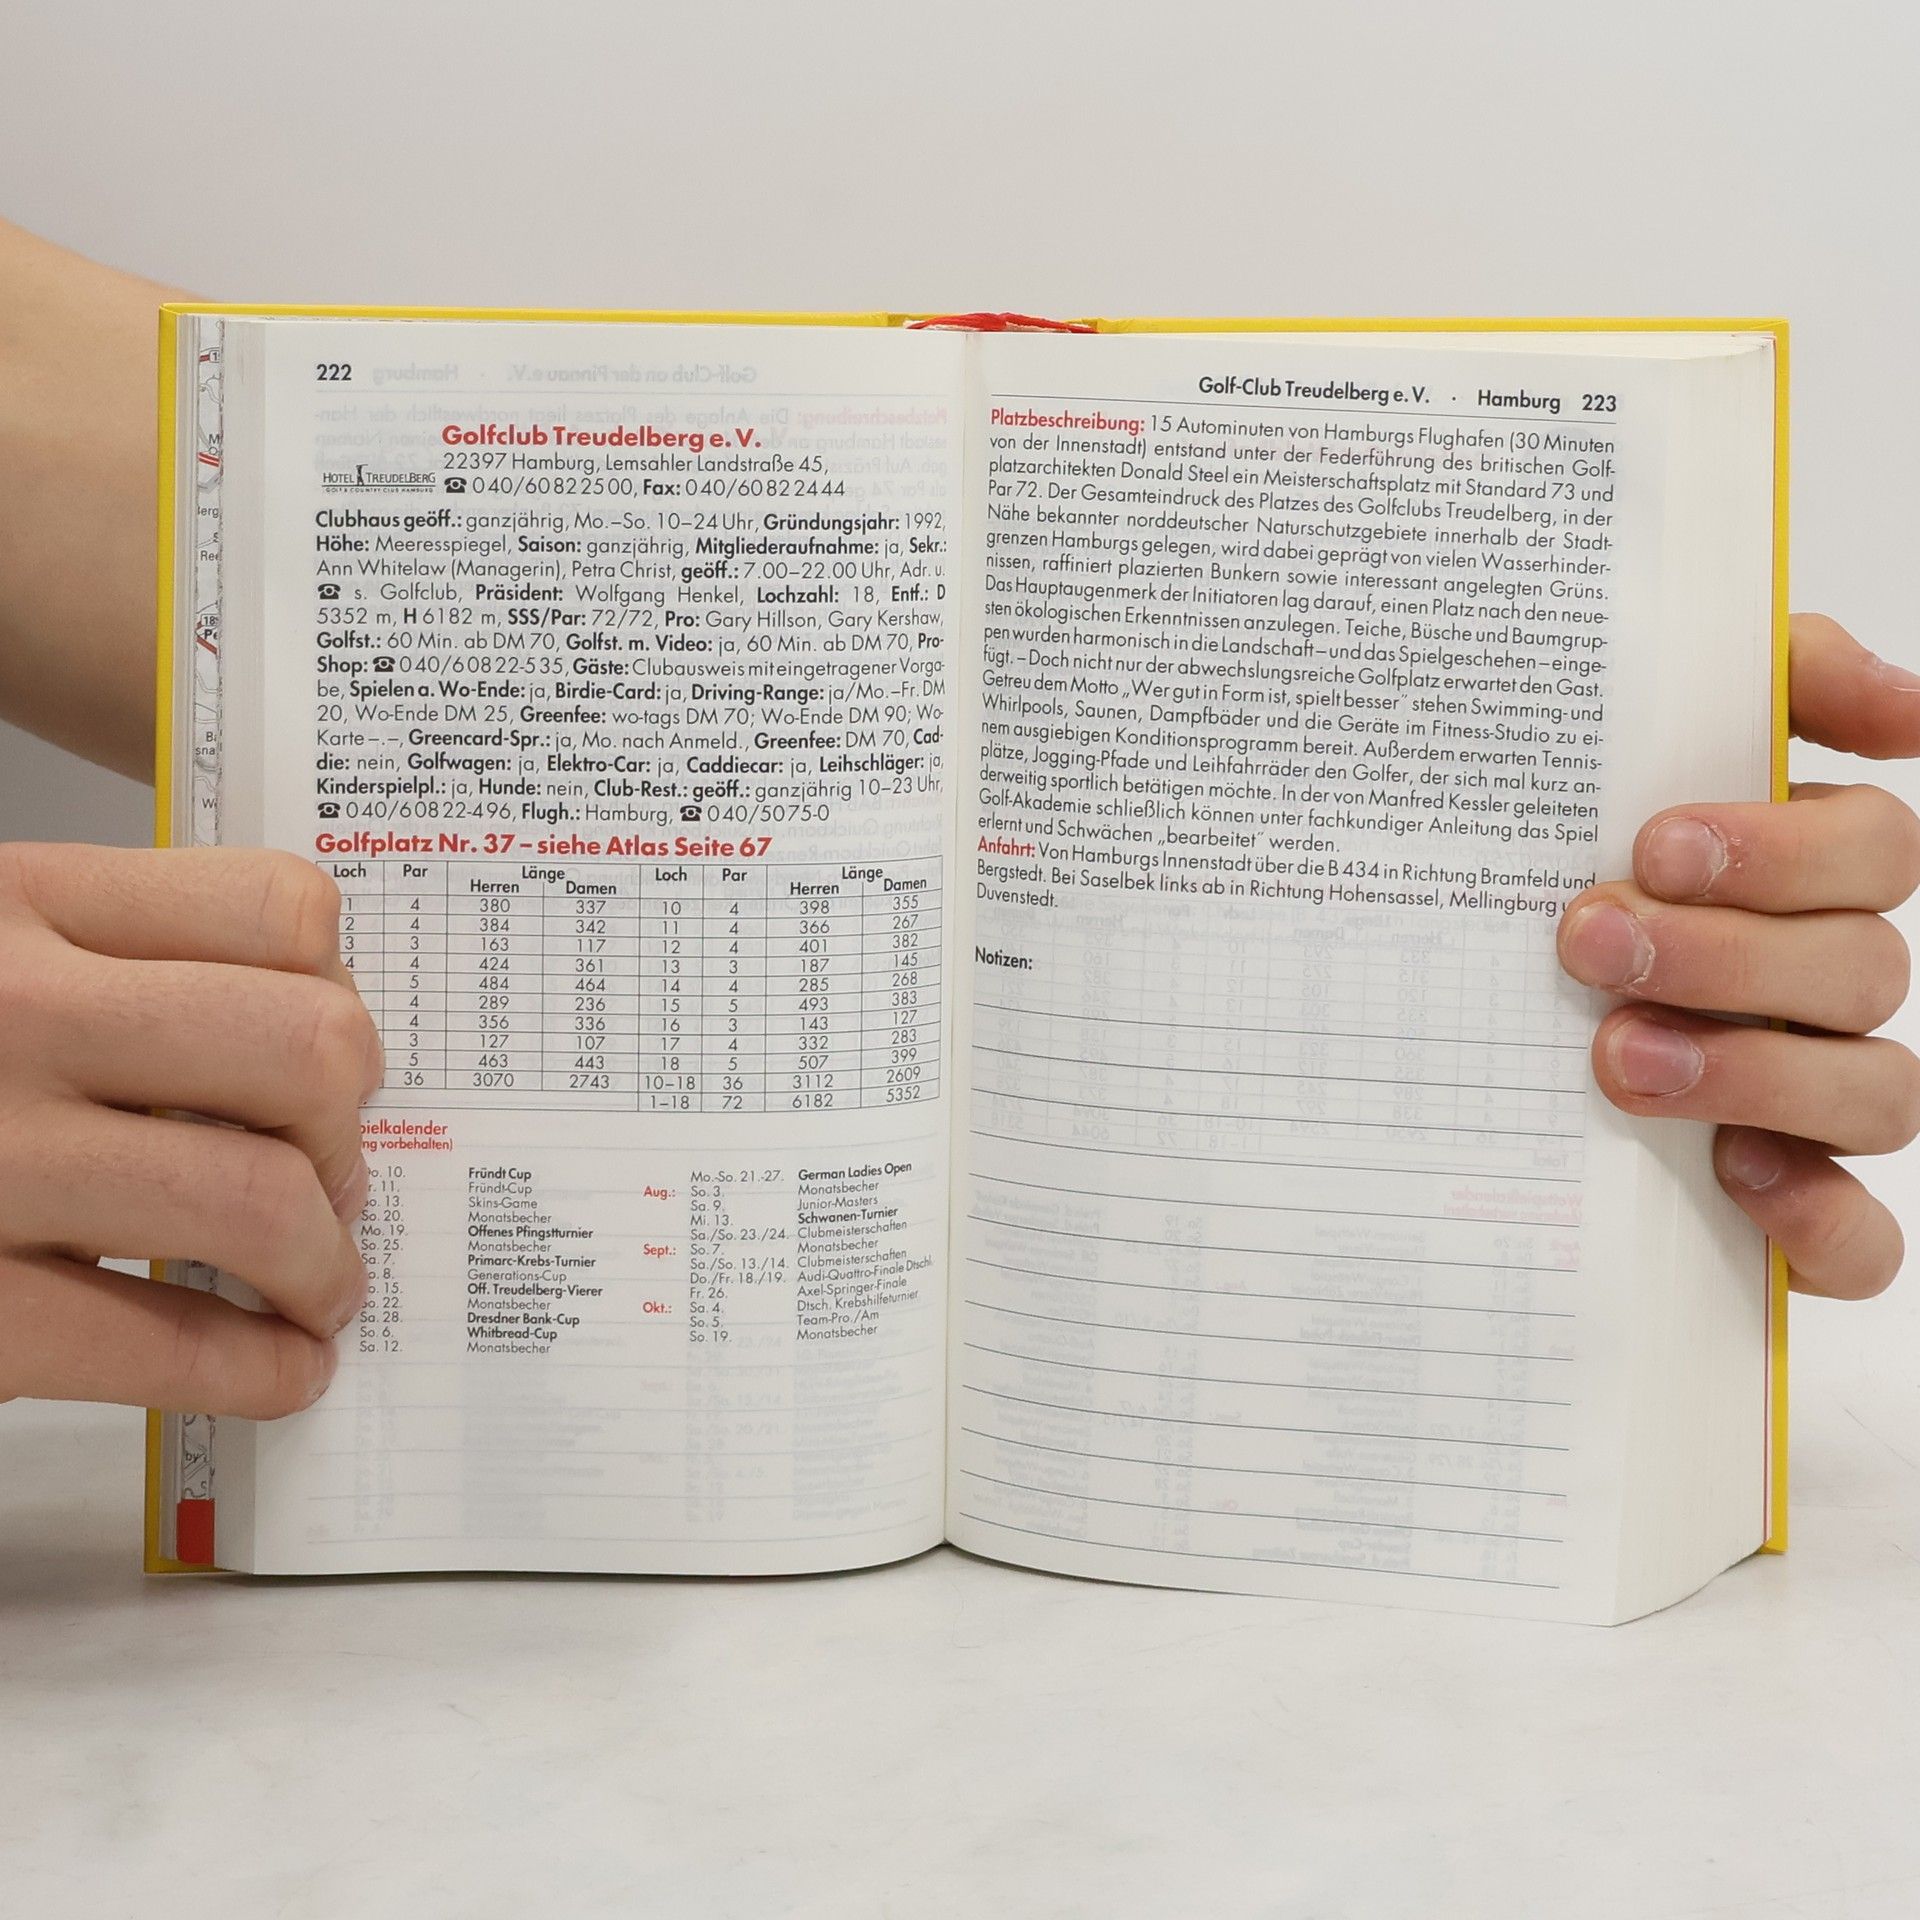 222
Golfclub Treudelberg e. V.
HOTEL TREUDELBERG
GOLF & COUNTRY CLUB HAMBURG
22397 Hamburg, Lemsahler Landstraße 45,
☎ 040/60822500, Fax: 040/60822444
Clubhaus geöff.: ganzjährig, Mo.–So. 10–24 Uhr, Gründungsjahr: 1992,
Höhe: Meeresspiegel, Saison: ganzjährig, Mitgliederaufnahme: ja, Sekr.:
Ann Whitelaw (Managerin), Petra Christ, geöff.: 7.00–22.00 Uhr, Adr. u.
☎ s. Golfclub, Präsident: Wolfgang Henkel, Lochzahl: 18, Entf.: D
5352 m, H 6182 m, SSS/Par: 72/72, Pro: Gary Hillson, Gary Kershaw,
Golfst.: 60 Min. ab DM 70, Golfst. m. Video: ja, 60 Min. ab DM 70, Pro-
Shop: ☎ 040/60822-535, Gäste: Clubausweis mit eingetragener Vorga-
be, Spielen a. Wo-Ende: ja, Birdie-Card: ja, Driving-Range: ja/Mo.–Fr. DM
20, Wo-Ende DM 25, Greenfee: wo-tags DM 70; Wo-Ende DM 90; Wo-
Karte –.–, Greencard-Spr.: ja, Mo. nach Anmeld., Greenfee: DM 70, Cad-
die: nein, Golfwagen: ja, Elektro-Car: ja, Caddiecar: ja, Leihschläger: ja,
Kinderspielpl.: ja, Hunde: nein, Club-Rest.: geöff.: ganzjährig 10–23 Uhr,
☎ 040/60822-496, Flugh.: Hamburg, ☎ 040/5075-0
Golfplatz Nr. 37 – siehe Atlas Seite 67
Loch Par Länge Loch Par Länge
Herren Damen Herren Damen
1 4 380 337 10 4 398 355
2 4 384 342 11 4 366 267
3 3 163 117 12 4 401 382
4 4 424 361 13 3 187 145
5 484 464 14 4 285 268
4 289 236 15 5 493 383
4 356 336 16 3 143 127
3 127 107 17 4 332 283
5 463 443 18 5 507 399
36 3070 2743 10–18 36 3112 2609
1–18 72 6182 5352
pielkalender
ng vorbehalten)
Do. 10. Fründt Cup Mo.-So. 21.-27. German Ladies Open
r. 11. Fründt-Cup Aug.: So. 3. Monatsbecher
So. 13. Skins-Game Sa. 9. Junior-Masters
So. 20. Monatsbecher Mi. 13. Schwanen-Turnier
Mo. 19. Offenes Pfingstturnier Sa./So. 23./24. Clubmeisterschaften
So. 25. Monatsbecher Sept.: So. 7. Monatsbecher
Sa. 7. Primarc-Krebs-Turnier Sa./So. 13./14. Clubmeisterschaften
o. 8. Generations-Cup Do./Fr. 18./19. Audi-Quattro-Finale Dtschl.
o. 15. Off. Treudelberg-Vierer Fr. 26. Axel-Springer-Finale
So. 22. Monatsbecher Okt.: Sa. 4. Dtsch. Krebshilfeturnier
Sa. 28. Dresdner Bank-Cup So. 5. Team-Pro./Am
So. 6. Whitbread-Cup So. 19. Monatsbecher
Sa. 12. Monatsbecher
Golf-Club Treudelberg e. V. · Hamburg 223
Platzbeschreibung: 15 Autominuten von Hamburgs Flughafen (30 Minuten
von der Innenstadt) entstand unter der Federführung des britischen Golf-
platzarchitekten Donald Steel ein Meisterschaftsplatz mit Standard 73 und
Par 72. Der Gesamteindruck des Platzes des Golfclubs Treudelberg, in der
Nähe bekannter norddeutscher Naturschutzgebiete innerhalb der Stadt-
grenzen Hamburgs gelegen, wird dabei geprägt von vielen Wasserhinder-
nissen, raffiniert plazierten Bunkern sowie interessant angelegten Grüns.
Das Hauptaugenmerk der Initiatoren lag darauf, einen Platz nach den neue-
sten ökologischen Erkenntnissen anzulegen. Teiche, Büsche und Baumgrup-
pen wurden harmonisch in die Landschaft – und das Spielgeschehen – einge-
fügt. – Doch nicht nur der abwechslungsreiche Golfplatz erwartet den Gast.
Getreu dem Motto „Wer gut in Form ist, spielt besser“ stehen Swimming- und
Whirlpools, Saunen, Dampfbäder und die Geräte im Fitness-Studio zu ei-
nem ausgiebigen Konditionsprogramm bereit. Außerdem erwarten Tennis-
plätze, Jogging-Pfade und Leihfahrräder den Golfer, der sich mal kurz an-
derweitig sportlich betätigen möchte. In der von Manfred Kessler geleiteten
Golf-Akademie schließlich können unter fachkundiger Anleitung das Spiel
erlernt und Schwächen „bearbeitet“ werden.
Anfahrt: Von Hamburgs Innenstadt über die B 434 in Richtung Bramfeld und
Bergstedt. Bei Saselbek links ab in Richtung Hohensassel, Mellingburg
Duvenstedt.
Notizen: